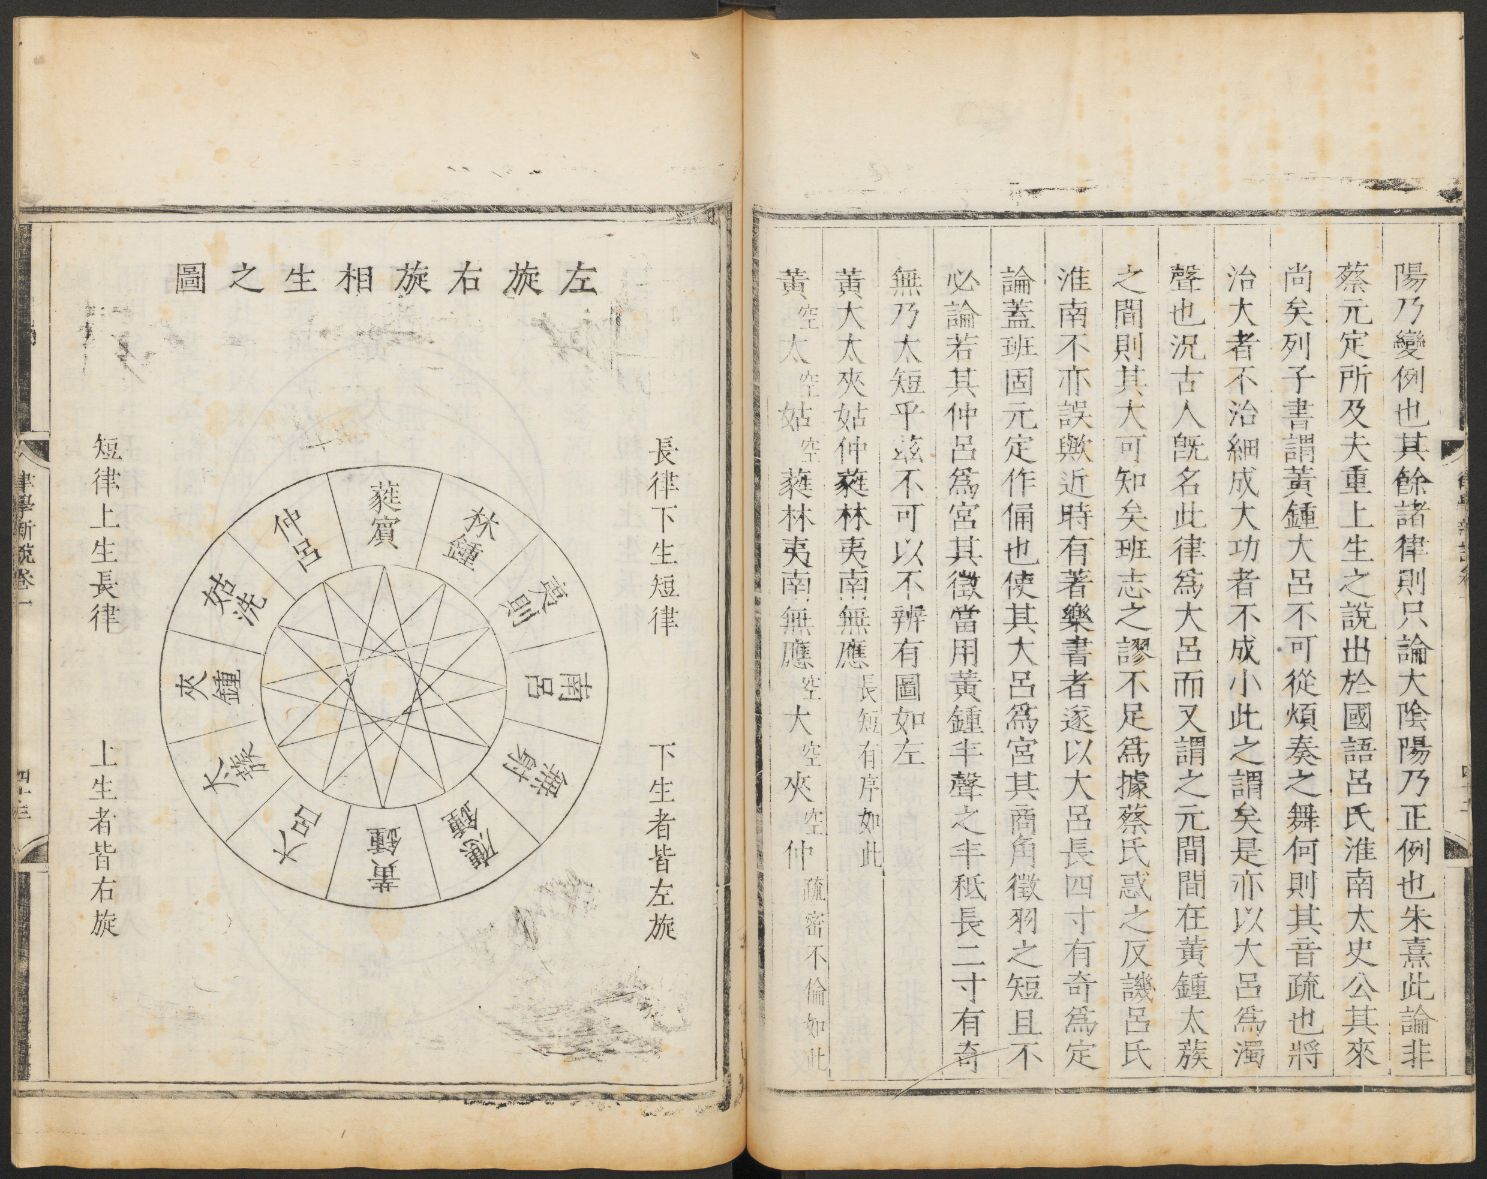 陽乃變例也其餘諸律則只論大陰陽乃正例也朱熹此論非
蔡元定所及夫重上生之說出於國語呂氏淮南太史公其來
尚矣列子書謂黃鍾大呂不可從煩奏之舞何則其音疏也將
治大者不治細成大功者不成小此之謂矣是亦以大呂為濁
聲也況古人旣名此律為大呂而又謂之元間間在黃鍾太蔟
之間則其大可知矣班志之謬不足為據蔡氏惑之反譏呂氏
淮南不亦誤歟近時有著樂書者遂以大呂長四寸有奇為定
論蓋班固元定作俑也使其大呂為宮其商角徵羽之短且不
必論若其仲呂為宮其徵當用黃鍾半聲之半秪長二寸有奇
無乃太短乎茲不可以不辨有圖如左
黃大太夾姑仲蕤林夷南無應長短有序如此
黃空太空姑空蕤林夷南無應空大空夾空仲疏密不倫如此
律學新說卷一
四十三
左旋右旋相生之圖
長律下生短律 下生者皆左旋
蕤賓
林鍾
夷則
南呂
無射
應鍾
黃鍾
大呂
太蔟
夾鍾
姑洗
仲呂
短律上生長律 上生者皆右旋